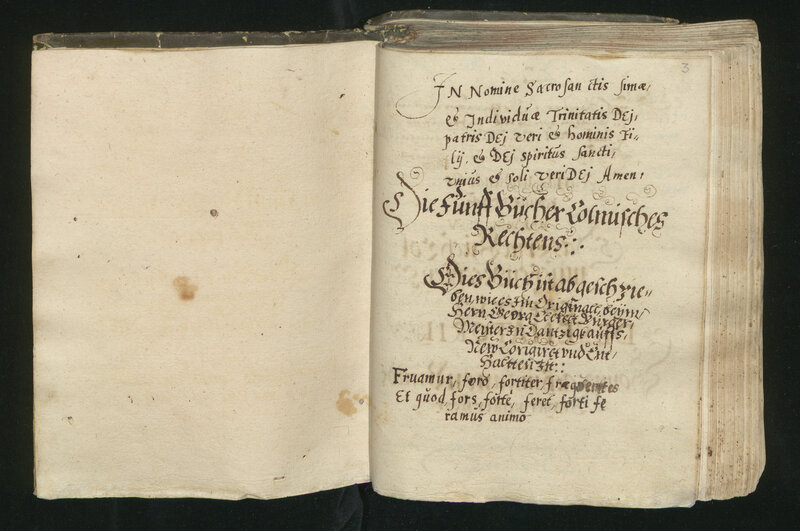 3
IN Nomine Sacrosanctissimæ,
& Individuæ Trinitatis DEj,
patris DEj veri & hominis Fi-
lij, & DEj spiritus sancti,
vnius & soli veri DEj Amen,
Die Fünff Bücher Colmisches
Rechtens.:.
Dies Buch ist abgeschrie-
ben, wie es im Originall beÿm
Hern Georg Bürger-
Meister zu Dantzigk auffs
New Corigiret vnd Ent-
halten ist.:
Fruamur, foro, fortiter, fræquentes
Et quod, fors, forte, feret, forti fe
ramus animo